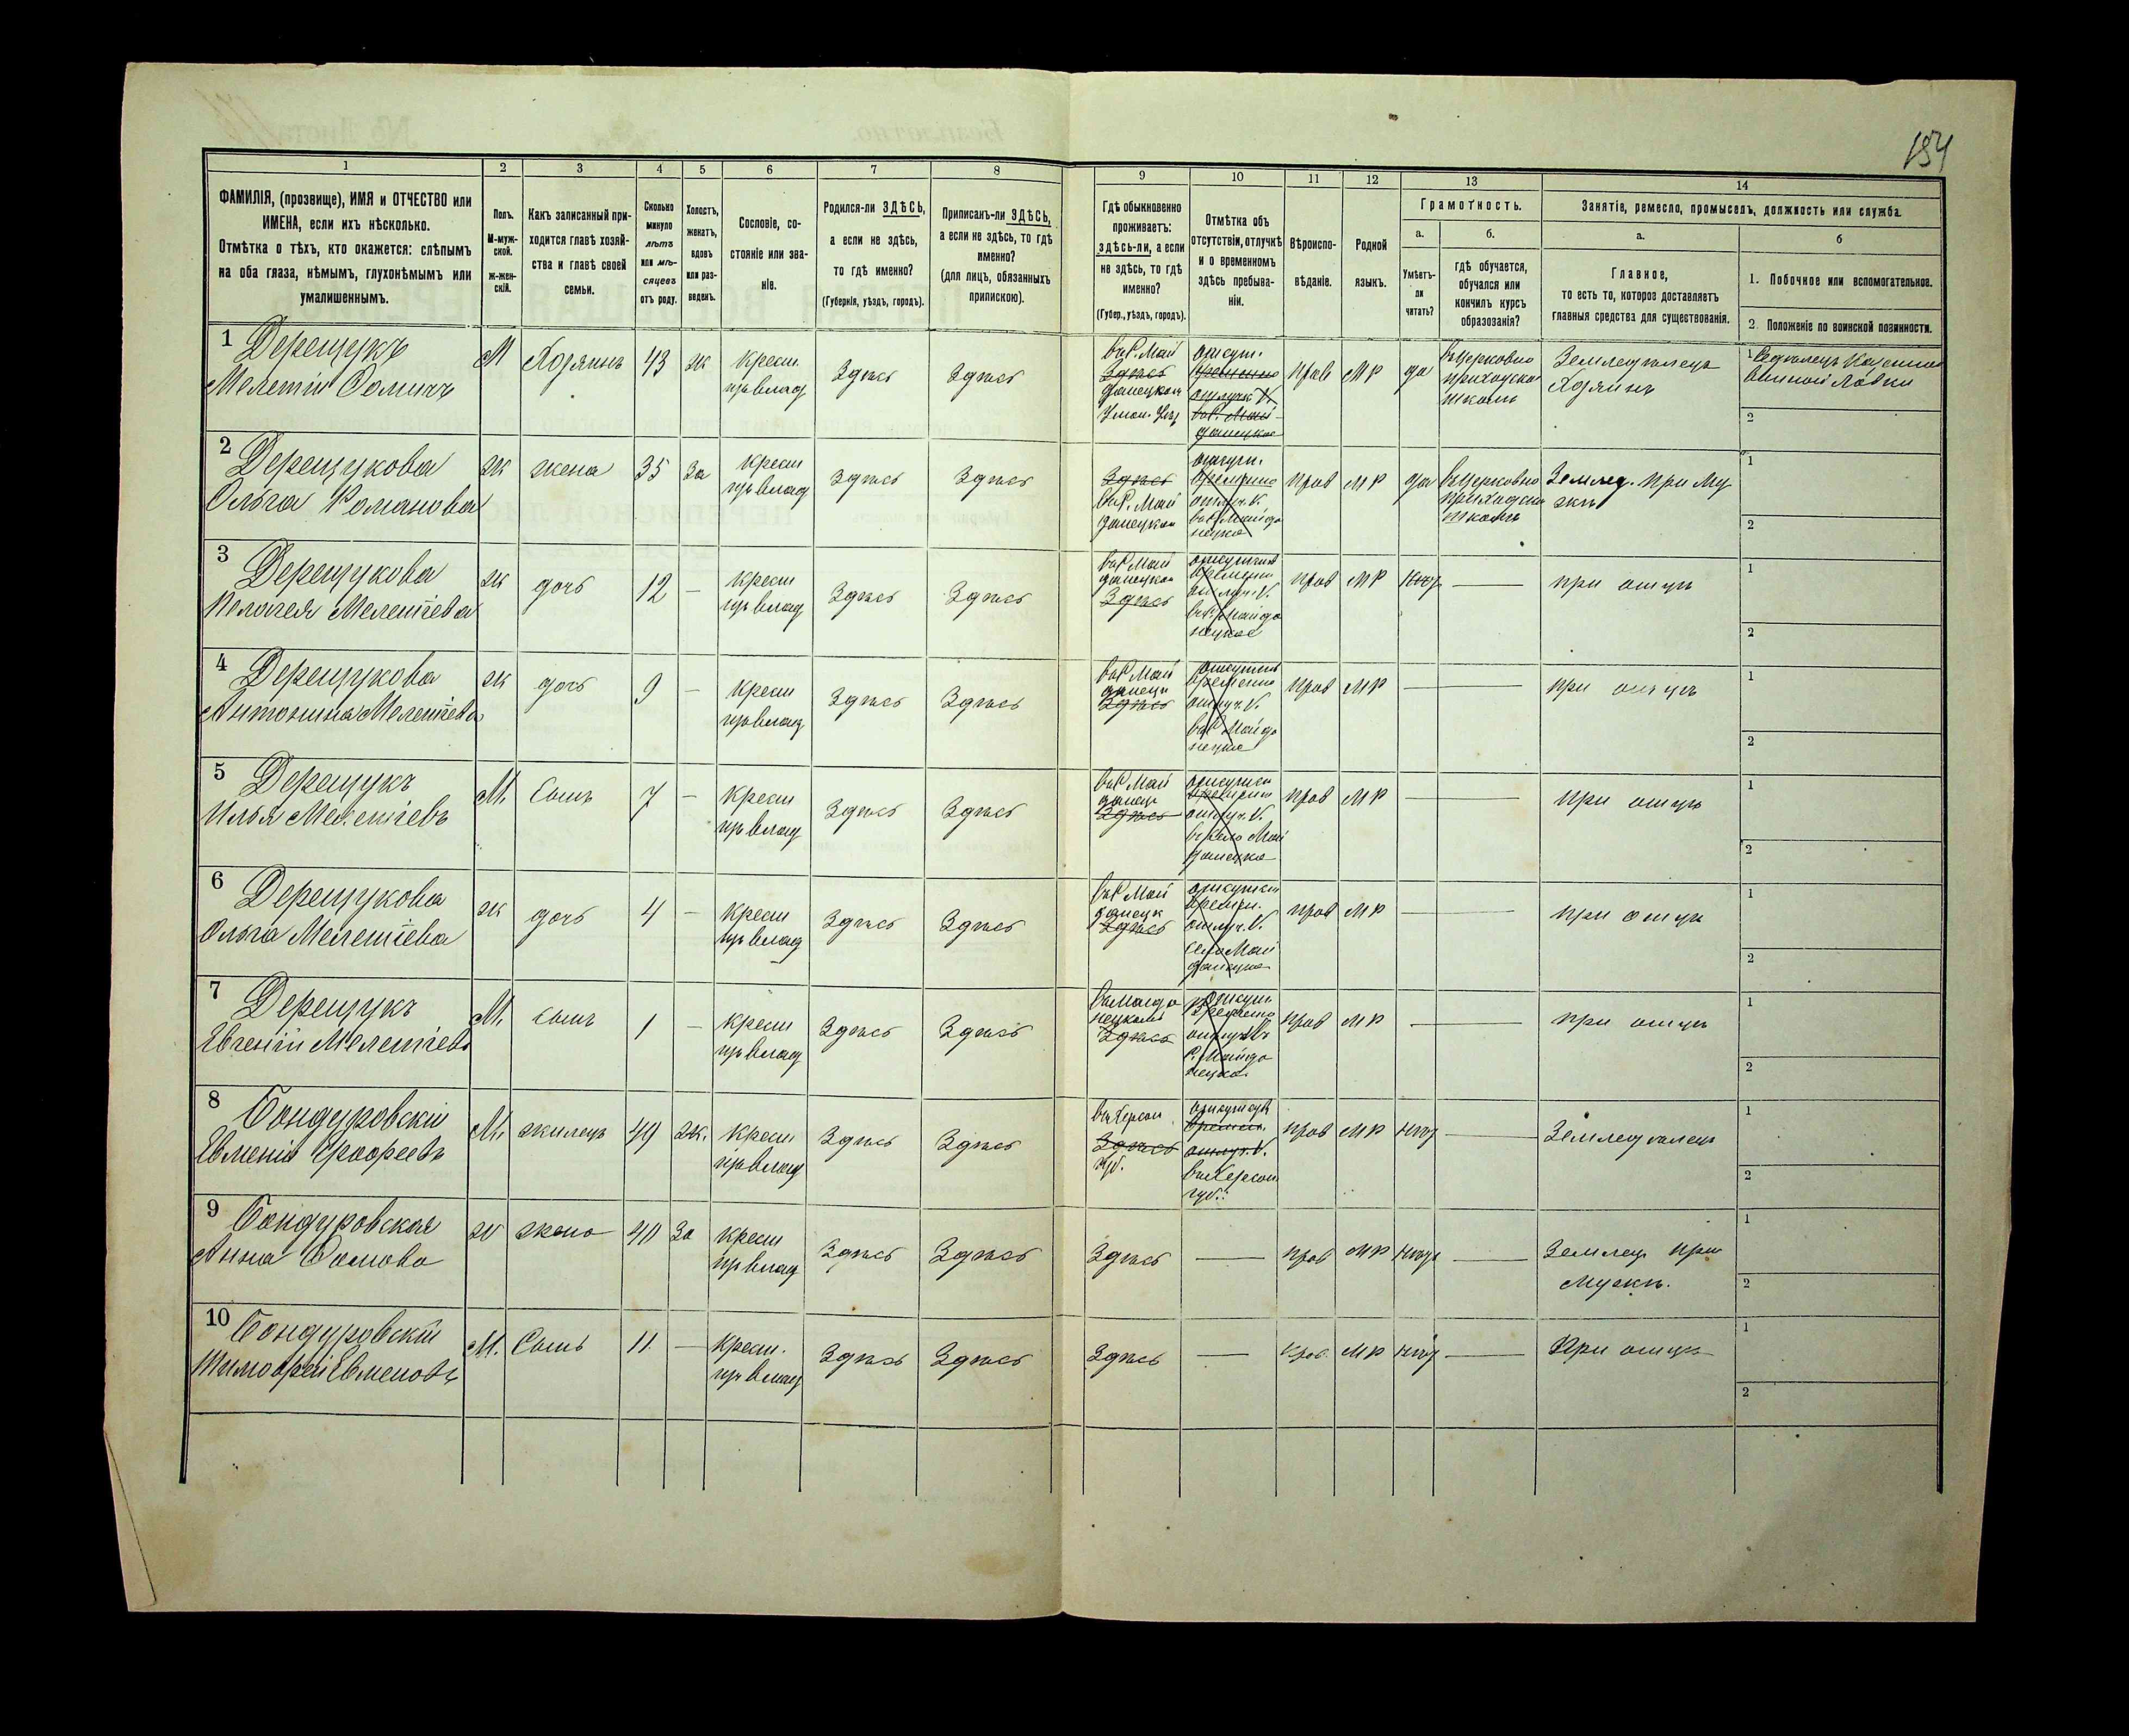 154
1 2 3 4 5 6 7 8 9 10 11 12 13 14
ФАМИЛІЯ, (прозвище), ИМЯ и ОТЧЕСТВО или
ИМЕНА, если ихъ нѣсколько.
Отмѣтка о тѣхъ, кто окажется: слѣпымъ
на оба глаза, нѣмымъ, глухонѣмымъ или
умалишеннымъ.
Полъ.
М-муж-
ской.
ж-жен-
скій.
Какъ записанный при-
ходится главѣ хозяй-
ства и главѣ своей
семьи.
Сколько
минуло
лѣтъ
или мѣ-
сяцевъ
отъ роду.
Холостъ,
женатъ,
вдовъ
или раз-
веденъ.
Сословіе, со-
стояніе или зва-
ніе.
Родился-ли ЗДѢСЬ,
а если не здѣсь,
то гдѣ именно?
(Губернія, уѣздъ, городъ).
Приписанъ-ли ЗДѢСЬ,
а если не здѣсь, то гдѣ
именно?
(для лицъ, обязанныхъ
припискою).
Гдѣ обыкновенно
проживаетъ:
здѣсь-ли, а если
не здѣсь, то гдѣ
именно?
(Губер., уѣздъ, городъ).
Отмѣтка объ
отсутствіи, отлучкѣ
и о временномъ
здѣсь пребыва-
ніи.
Вѣроиспо-
вѣданіе.
Родной
языкъ.
Грамотность.
а.
Умѣетъ-
ли
читать?
б.
гдѣ обучается,
обучался или
кончилъ курсъ
образованія?
Занятіе, ремесло, промыселъ, должность или служба.
а.
Главное,
то есть то, которое доставляетъ
главныя средства для существованія.
б
1. Побочное или вспомогательное.
2. Положеніе по воинской повинности.
1 Дерещукъ
Мелетій Фоминъ
М Хозяинъ 43 ж
крест.
Здѣсь Здѣсь
въ С. Май
Здѣсь
данецком
отсут.
временно
прав МР да
въ церковно
приходско
школѣ
Земледѣлецъ
Хозяинъ
винной лавки
1
2
2 Дерещукова
Ольга Романова
ж жена 35 За
крест
Здѣсь Здѣсь
Здѣсь
въ С. Май
данецком
отсут.
временно
прав МР да
въ церковно
приходско
школѣ
Землед. при му
жѣ
1
2
3 Дерещукова
Пелагея Мелетіева
ж дочь 12 —
крест
Здѣсь Здѣсь
въ С. Май
данецком
Здѣсь
временно
прав МР нѣтъ —
при отцѣ
1
2
4 Дерещукова
Антонина Мелетіева
ж дочь 9 —
крест
Здѣсь Здѣсь
въ С. Май
данецк
Здѣсь
временно
прав МР —
при отцѣ
1
2
5 Дерещукъ
Илья Мелетіевъ
М. Сынъ 7 —
крест
Здѣсь Здѣсь
въ С. Май
данецк
Здѣсь
временно
прав МР —
при отцѣ
1
2
6 Дерещукова
Ольга Мелетіева
ж дочь 4 —
крест
Здѣсь Здѣсь
въ С. Май
данецк
Здѣсь
времен.
село Май
данецкое
прав МР —
при отцѣ
1
2
7 Дерещукъ
Евгеній Мелетіевъ
М. сынъ 1 —
крест
Здѣсь Здѣсь
въ Майда
нецкомъ
Здѣсь
отсут.
временно
С. Майда
нецкое
прав МР —
при отцѣ
1
2
8 Бондуровскій
М. жилецъ 49 ж.
крест
Здѣсь Здѣсь
въ Херсон
Здѣсь
губ.
времен.
въ Херсон
губ.
прав МР нѣтъ —
Земледѣлецъ
1
2
9 Бондуровская
Анна Фомова
ж жена 40 За
крест
Здѣсь Здѣсь
Здѣсь —
прав МР нѣтъ —
Землед. при
мужѣ.
1
2
10 Бондуровскій
Тимофей Евменовъ
М. Сынъ 11. —
крест.
Здѣсь Здѣсь
Здѣсь —
прав. МР нѣтъ —
При отцѣ
1
2